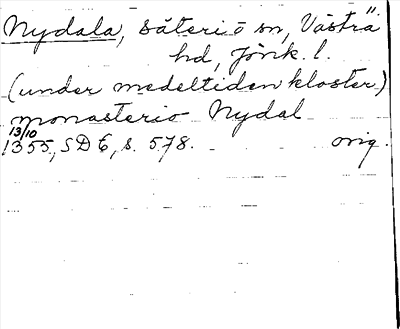 Nydala, säteri o sn, Västra
hd, Jönk. l.
(under medeltiden kloster)
monasterio Nydal
13/10
1355, SD 6, s. 578. orig.